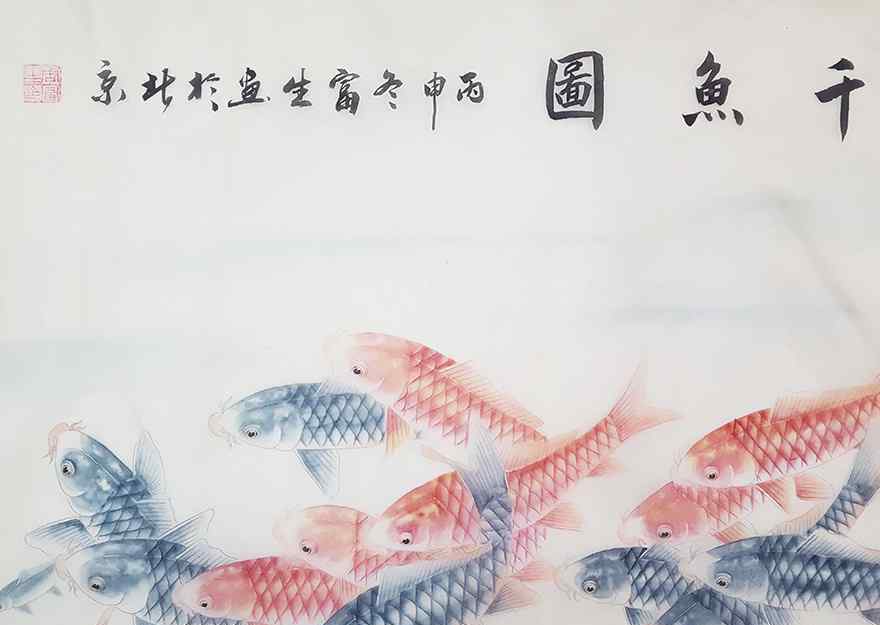 千魚圖
丙申冬富生畫於北京